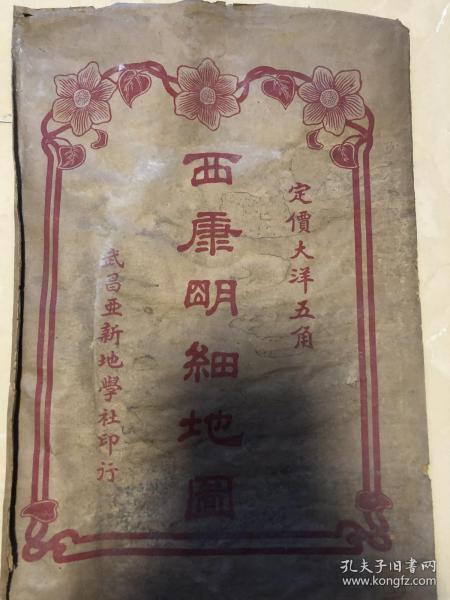 定價大洋五角
西康明細地圖
武昌亜新地學社印行
孔夫子旧书网
www.kongfz.com